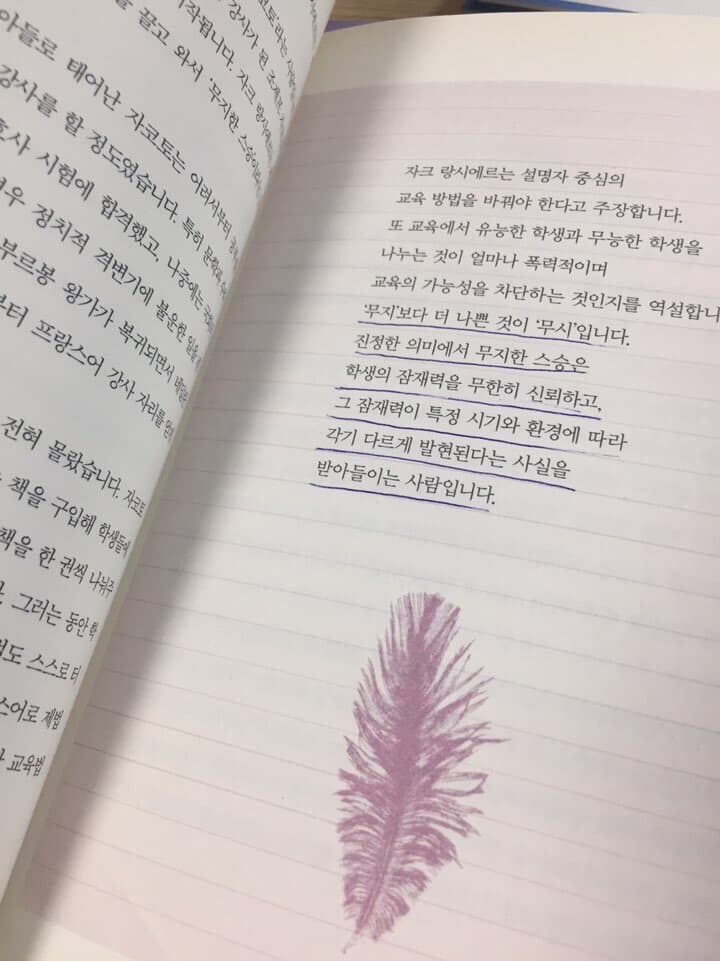 아들로 태어난 자코토는 어려서부터
강사를 할 정도였습니다. 특히
시험에 합격했고, 나중에는
정치적 격변기에 불운한 일을
부르봉 왕가가 복귀되면서
프랑스어 강사 자리를
전혀 몰랐습니다. 자코토
책을 구입해 학생들에
책을 한 권씩 나눠주
그러는 동안 학
스스로 터
제법
교육법
자크 랑시에르는 설명자 중심의
교육 방법을 바꿔야 한다고 주장합니다.
또 교육에서 유능한 학생과 무능한 학생을
나누는 것이 얼마나 폭력적이며
교육의 가능성을 차단하는 것인지를 역설합니
'무지'보다 더 나쁜 것이 '무시'입니다.
진정한 의미에서 무지한 스승은
학생의 잠재력을 무한히 신뢰하고,
그 잠재력이 특정 시기와 환경에 따라
각기 다르게 발현된다는 사실을
받아들이는 사람입니다.